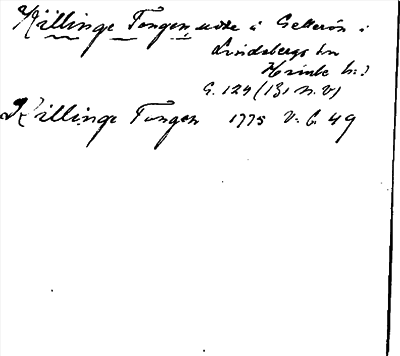 Killinge Tongen udde å Getterön i
Lindbergs sn
Himle h:d
G. 124 (131 n. v)
Killinge Tungen 1775 V. b. 49